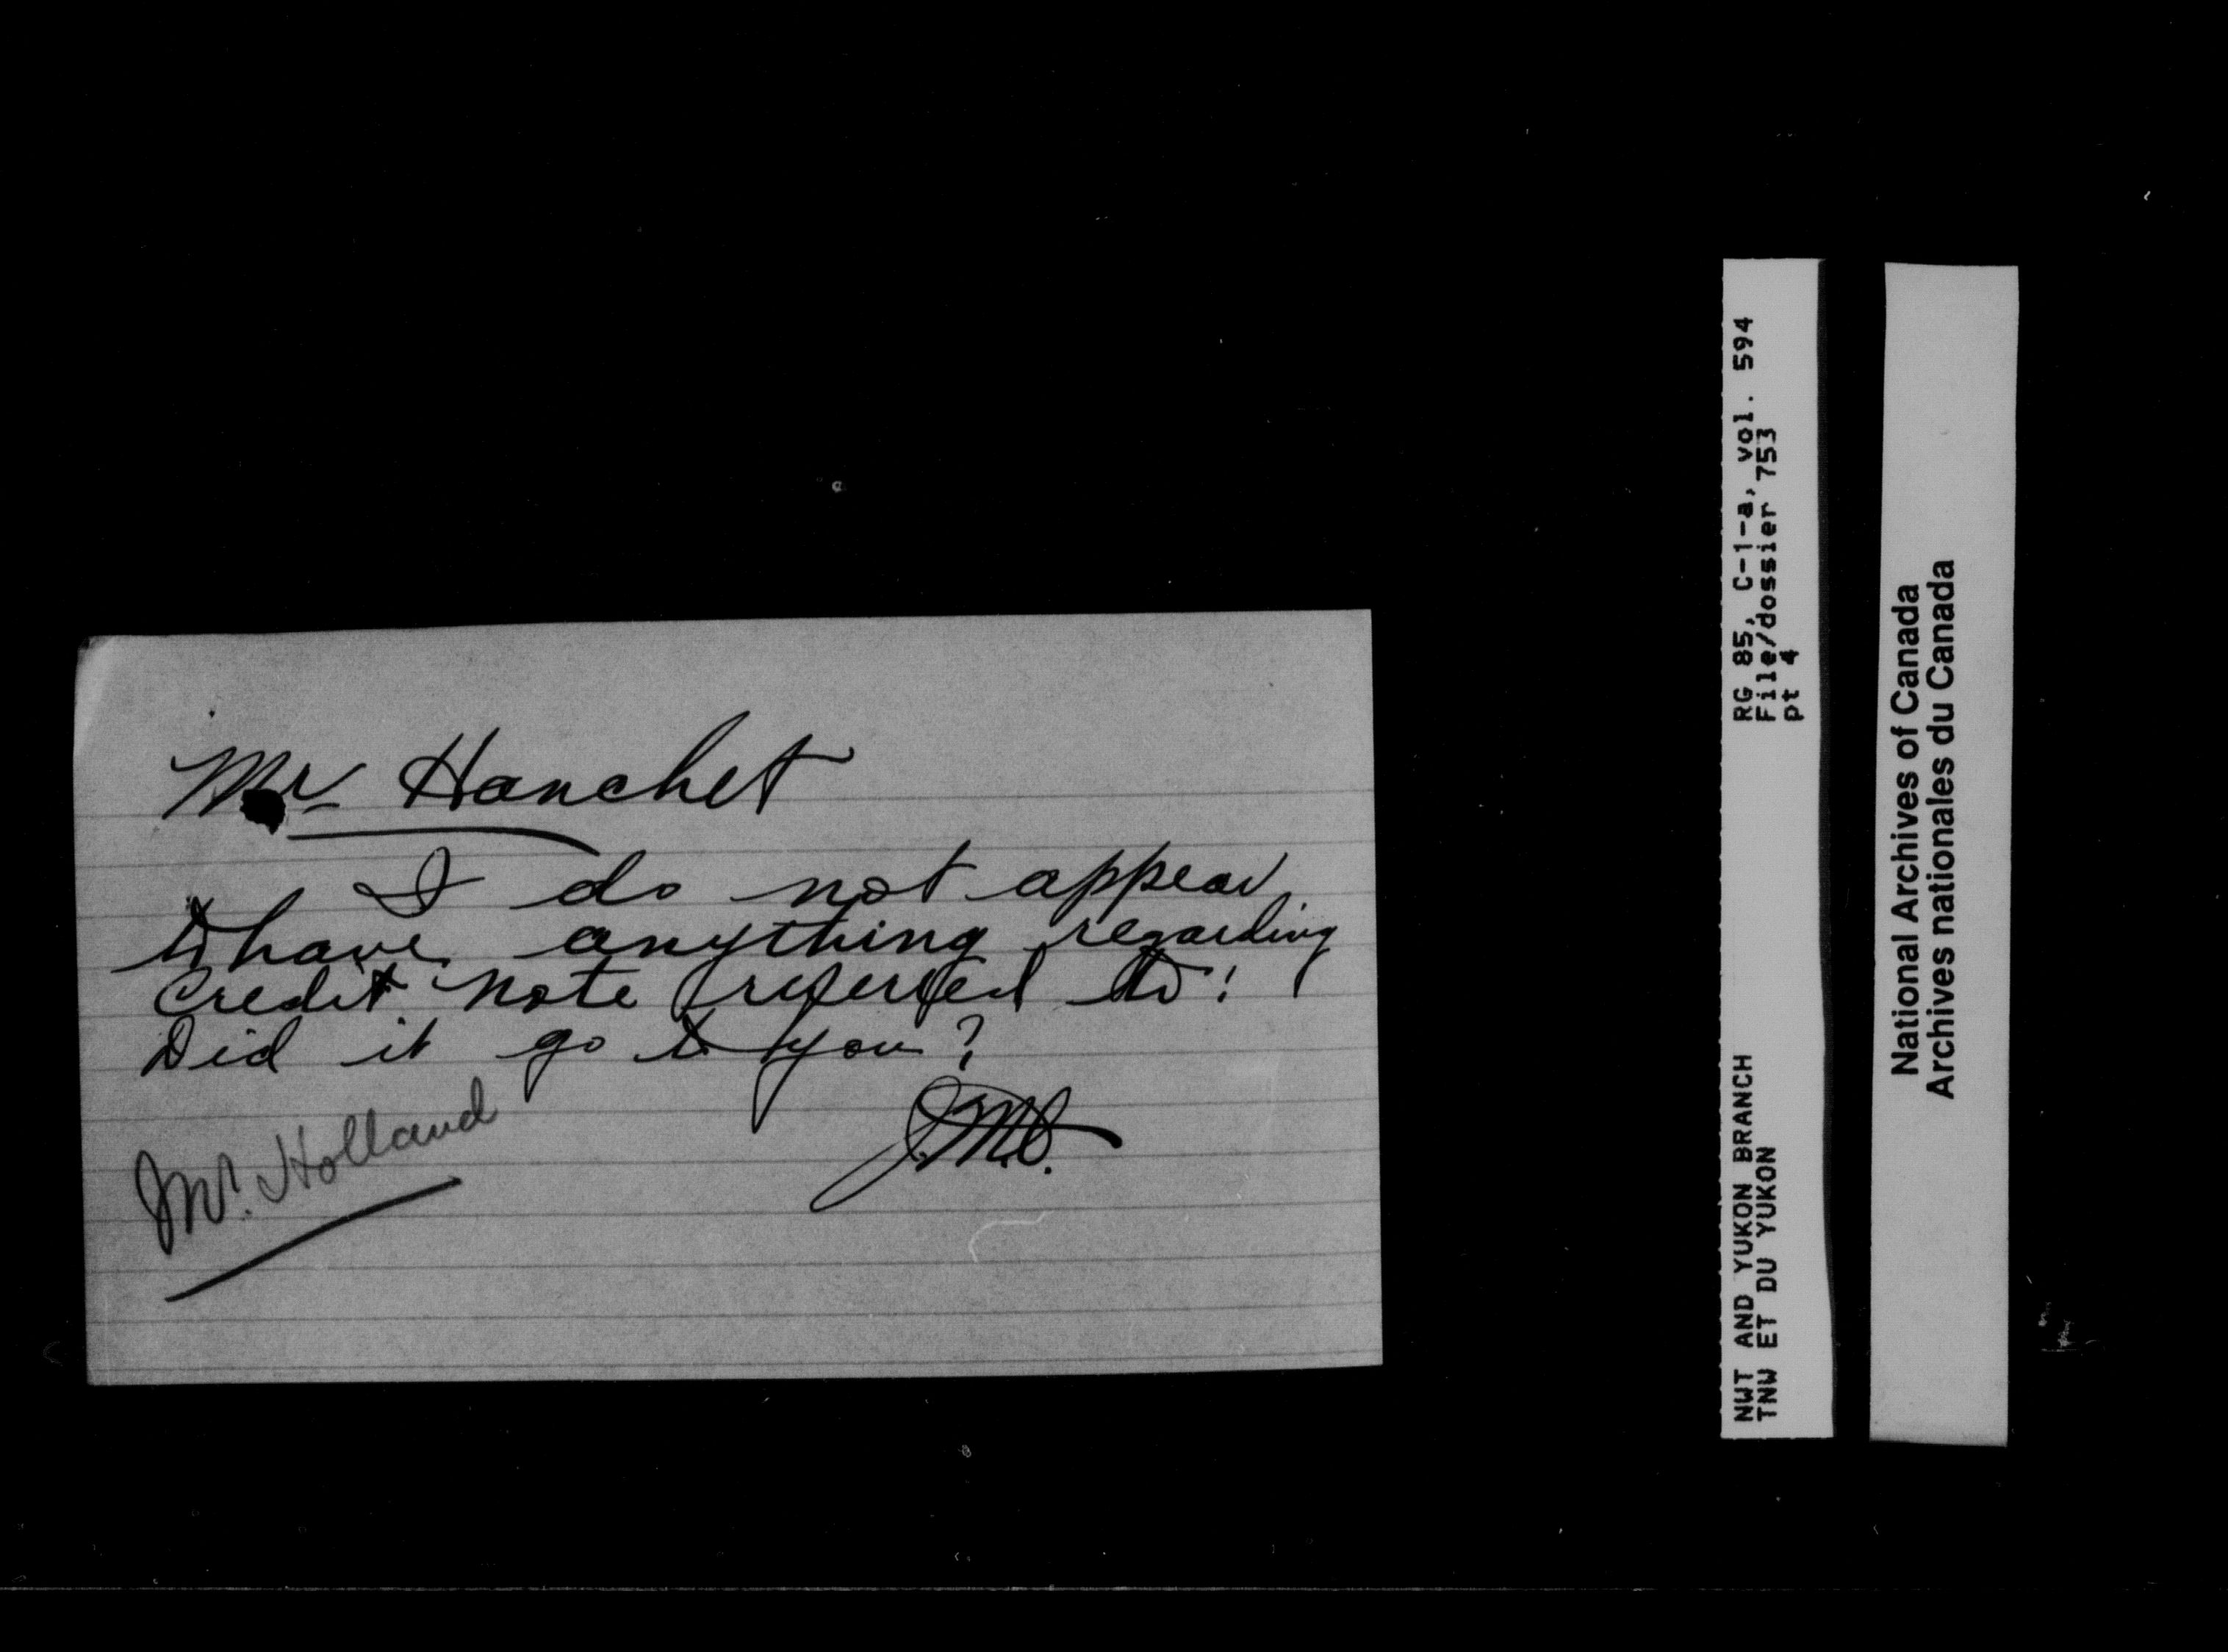 Mr Hanchet
I do not appear
to have anything regarding
credit note referred to!
Did it go to you?
Mr. Holland
RG 85, C-1-a, vol. 594
File/dossier 753
pt 4
NWT AND YUKON BRANCH
TNW ET DU YUKON
National Archives of Canada
Archives nationales du Canada